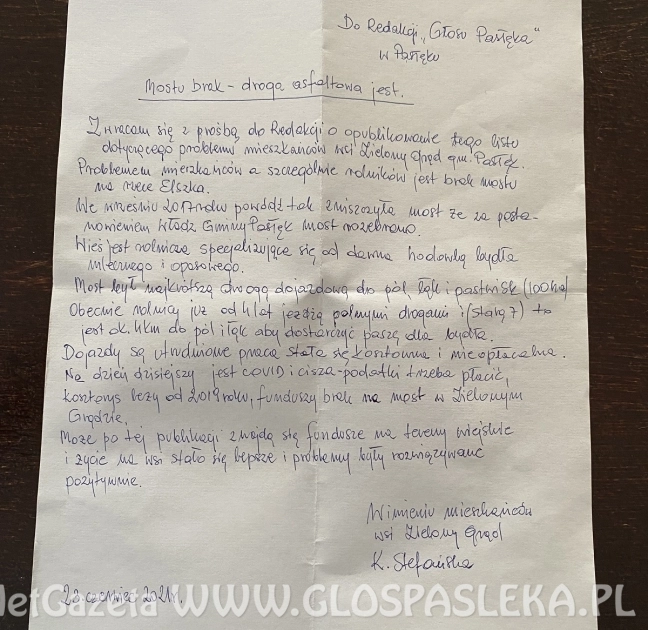 Do Redakcji „Głosu Pasłęka"
w Pasłęku
Mostu brak - droga asfaltowa jest.
Zwracam się z prośbą do Redakcji o opublikowanie tego listu
dotyczącego problemu mieszkańców wsi Zielony Grąd gm. Pasłęk.
Problemem mieszkańców a szczególnie rolników jest brak mostu
na rzece Elszka.
We wrześniu 2017 roku powódź tak zniszczyła most że za posta-
nowieniem Włodz Gminy Pasłęk most rozebrano.
Wieś jest rolnicza specjalizująca się od dawna hodowlą bydła
mlecznego i opasowego.
Most był najkrótszą drogą dojazdową do pól, łąk i pastwisk (100 ha)
Obecnie rolnicy już od 4 lat jeżdżą polnymi drogami i (starą 7) to
jest ok. 4km do pól i łąk aby dostarczyć paszę dla bydła.
Dojazdy są utrudnione praca stała się kosztowna i nieopłacalna.
Na dzień dzisiejszy jest COVID i cisza - podatki trzeba płacić,
kosztorys leży od 2019 roku, funduszy brak na most w Zielonym
Grądzie.
Może po tej publikacji znajdą się fundusze na tereny wiejskie
i życie na wsi stało się lepsze i problemy były rozwiązywane
pozytywnie.
W imieniu mieszkańców
wsi Zielony Grąd
K. Stefańska
28 czerwiec 2021r.
letGazeta WWW.GLOSPASLEKA.PL